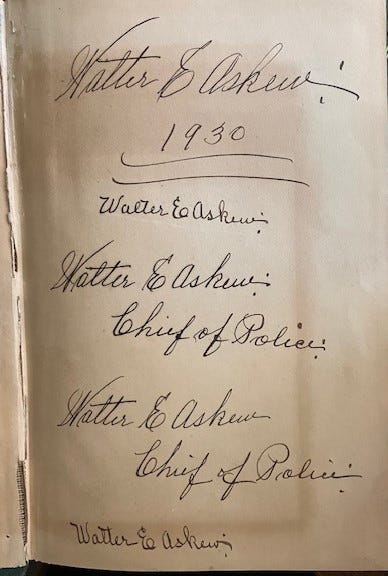 Walter E Askew:
1930
Walter E Askew:
Walter E Askew:
Chief of Police:
Walter E Askew
Chief of Police:
Walter E Askew: